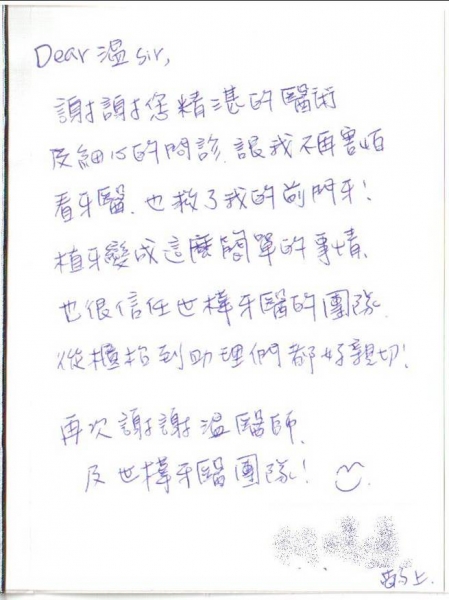 Dear 溫 sir,
謝謝您精湛的醫術
及細心的問診.讓我不再害怕
看牙醫.也救了我的前門牙!
植牙變成這麼簡單的事情.
也很信任世樺牙醫的團隊.
從櫃枱到助理們都好親切!
再次謝謝溫醫師.
及世樺牙醫團隊!
上.